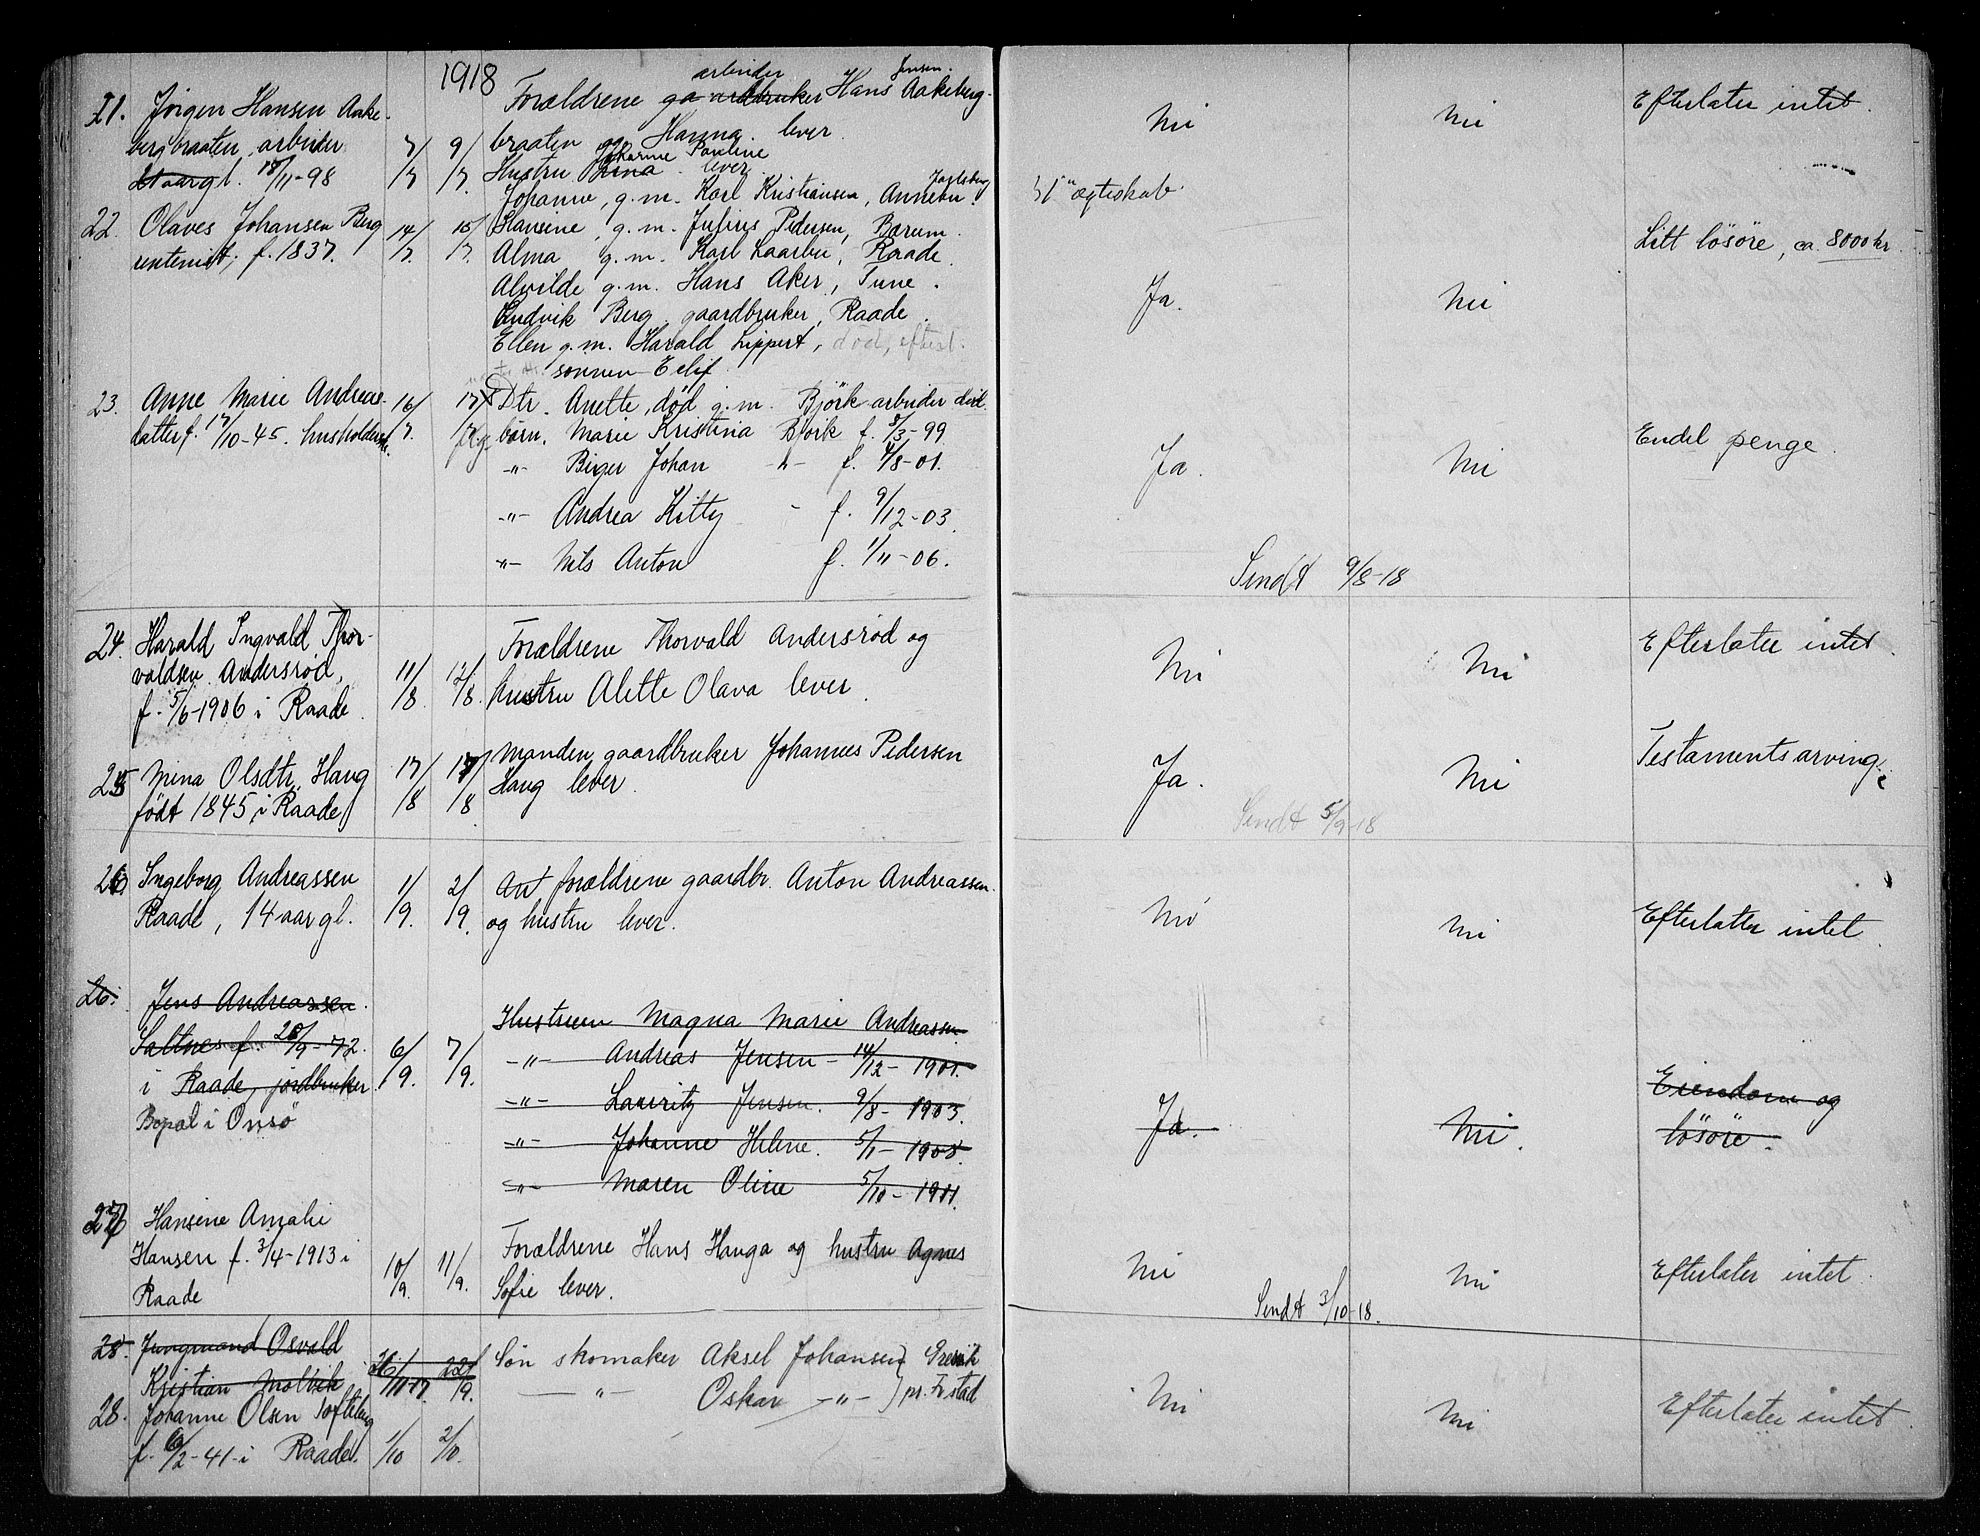 1918
21. Jørgen Hansen Aake-
bergbraaten, arbeider
21 aar gl. 18/11-98
7/7 9/7.
arbeider Jensen.
Forældrene ga ardbruker Hans Aakeberg-
braaten og Hanna. lever.
Johanne Pauline
Hustru Lina. lever.
Nei Nei Efterlater intet.
22. Olaves Johansen Berg
rentenist, f. 1837.
14/7. 15/7.
Jarlsberg
Johanne, g.m. Karl Kristiansen, Annebu
Hansine, g.m. Julius Pedersen, Bærum.
Alma g.m. Karl Laarbu, Raade.
Alvilde g.m. Hans Aker, Tune.
Ludvik Berg. gaardbruker, Raade.
Ellen g.m. Harald Lippert, død, efterl.
sønnen Eilif.
ægteskab.
Ja. Nei
Litt løsøre, ca. 8000 kr.
23. Anne Marie Andreas-
datter f. 17/10-45. husholderske.
16/7. 17/7
Dtr. Anette, død g.m. Björk arbeider död.
børn. Marie Kristina Björk f. 8/3-99
-"- Birger Johan -"- f. 4/8-01.
-"- Andrea Kitty - f. 9/12-03.
-"- Nils Anton f. 1/11-06.
Ja. Nei
Endel penge.
Sendt 9/8-18
24. Harald Ingvald Thor-
valdsen Andersrød,
f. 5/6-1906 i Raade.
11/8. 12/8.
Forældrene Thorvald Andersrød og
hustru Alette Olava lever.
Nei Nei
Efterlater intet.
25 Mina Olsdtr. Haug
født 1845 i Raade
17/8 17/8
Manden gaardbruker Johannes Pedersen
Haug lever.
Ja. Nei
Testamentsarving
Sendt 5/9-18
26 Ingeborg Andreassen
Raade, 14 aar gl.
1/9. 2/9.
Ant forældrene gaardbr. Anton Andreassen
og hustru lever.
Nei Nei
Efterlater intet.
26. Jens Andreassen.
Saltnes f. 28/9-72.
i Raade, jordbruker.
Bopæl i Onsø
6/9. 7/9.
Hustruen Magna Marie Andreassen
-"- Andreas Jensen - 14/12-1901.
-"- Lauritz Jensen. 9/8-1903.
-"- Johanne Helene. 5/1-1908.
-"- Maren Oline 5/10-1911.
Ja. Nei.
Eiendom og
løsøre.
27 Hansine Amalie
Hansen f. 3/4-1913 i
Raade
10/9. 11/9.
Forældrene Hans Hauga og hustru Agnes
Sofie lever.
Nei Nei
Efterlater intet.
Sendt 3/10-18.
28. Jungmand Osvald
Kristian Molvik
26/11-17. 22/9.
28. Johanne Olsen Tofteberg
f. 6/2-41 i Raade.
1/10 2/10.
Søn skomaker Aksel Johansen } Gressvik
-"- Oskar -"- } pr. Fr.stad
Nei Nei
Efterlater intet.